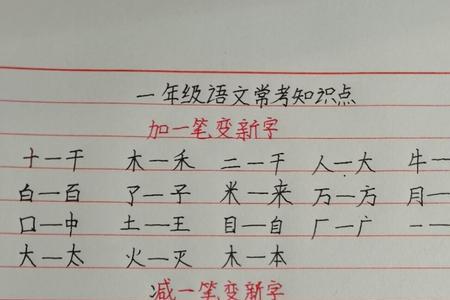 一年级语文常考知识点
加一笔变新字
十—干 木—禾 二—干 人—大 牛—
白—百 了—子 米—来 万—方 月—
口—中 土—王 目—自 厂—广 一—
大—太 火—灭 木—本
减一笔变新字